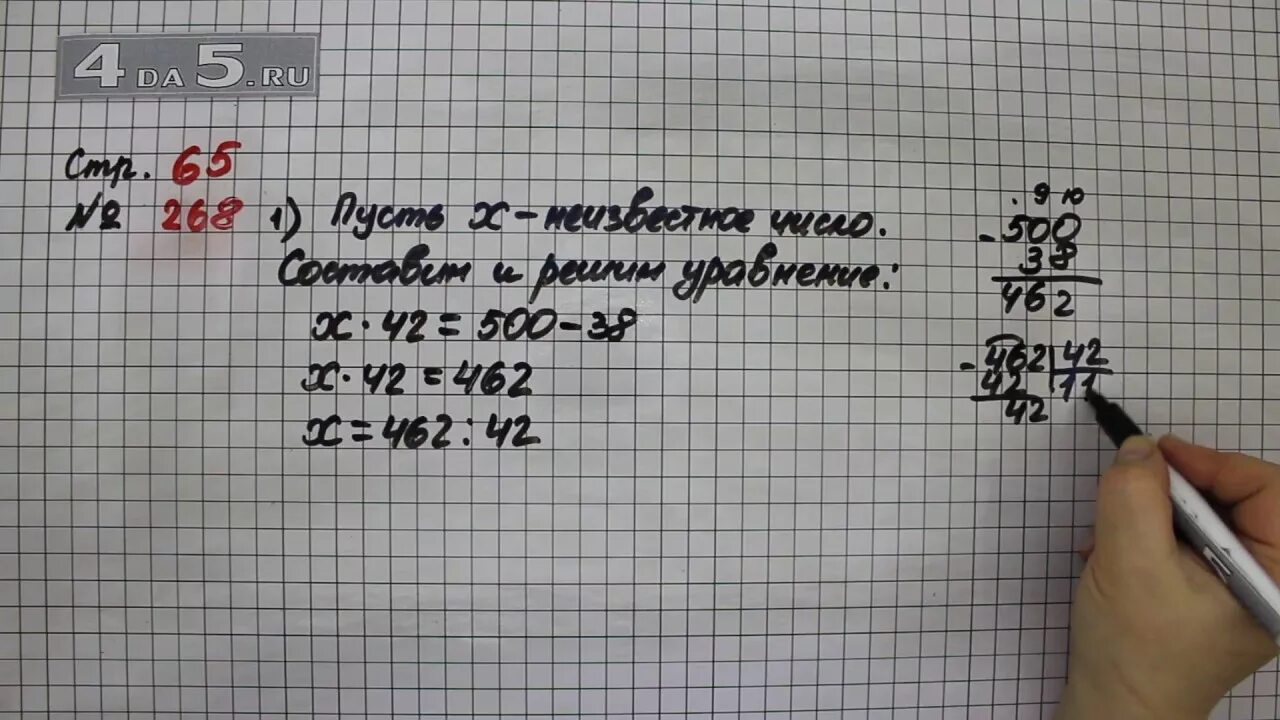 4DA5.RU
Стр. 65
№ 268 1) Пусть х - неизвестное число.
Составим и решим уравнение:
х · 42 = 500 - 38
х · 42 = 462
х = 462 : 42
. 9 10
- 500
38
462
- 462 | 42
42 | 11
42